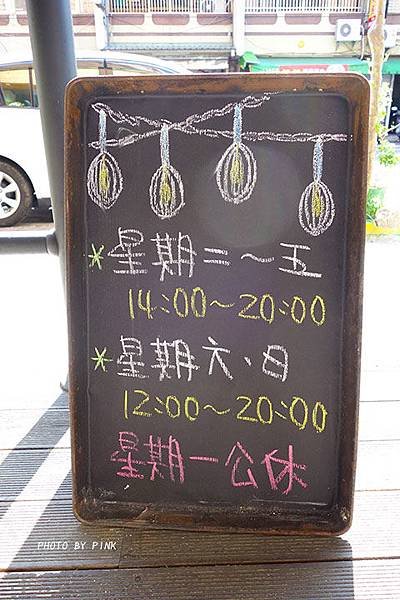 *星期二~五
14:00~20:00
*星期六、日
12:00~20:00
星期一公休
PHOTO BY PINK